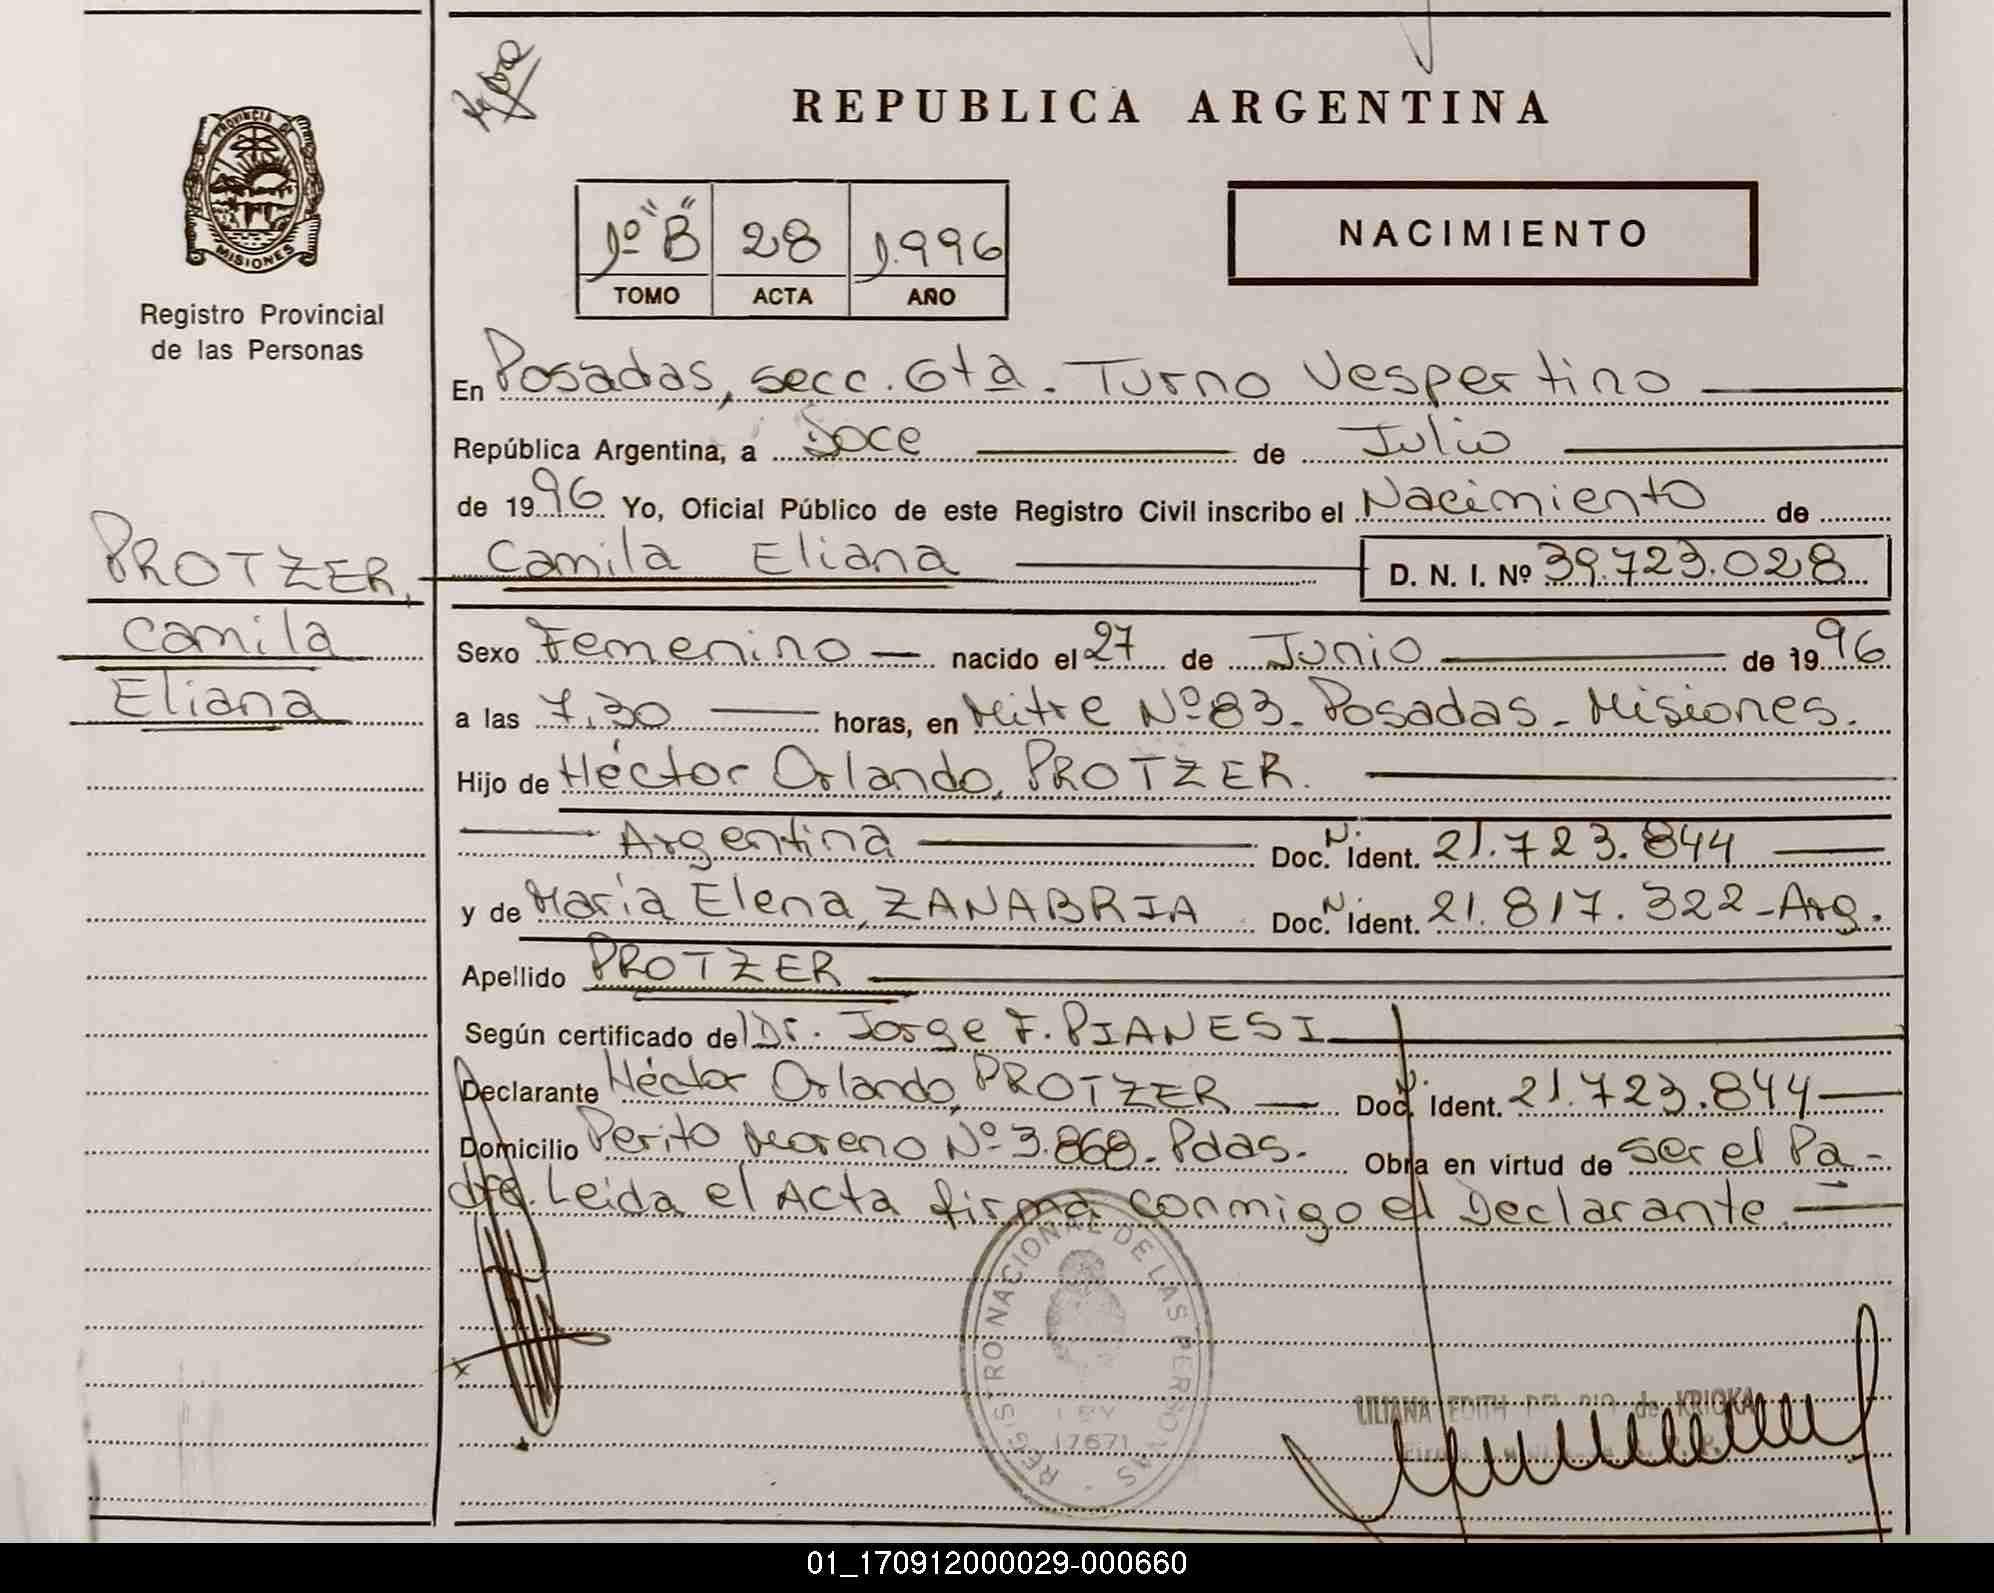 REPUBLICA ARGENTINA
PROVINCIA DE
MISIONES
Registro Provincial
de las Personas
1º "B" 28 1.996
TOMO ACTA AÑO
NACIMIENTO
En Posadas, secc. 6ta. Turno Vespertino
República Argentina, a Doce de Julio
de 1996 Yo, Oficial Público de este Registro Civil inscribo el Nacimiento de
Camila Eliana D. N. I. Nº 39.723.028
PROTZER,
Camila
Eliana
Sexo Femenino nacido el 27 de Junio de 1996
a las 7,30 horas, en Mitre Nº 83. Posadas - Misiones.
Hijo de Héctor Orlando, PROTZER.
Argentina Doc. N. Ident. 21.723.844
y de María Elena, ZANABRIA Doc. N. Ident. 21.817.322 - Arg.
Apellido PROTZER
Según certificado del Dr. Jorge F. PIANESI
Declarante Héctor Orlando, PROTZER Doc. Ident. 21.723.844
Domicilio Perito Moreno Nº 3.868 - Pdas. Obra en virtud de ser el Pa-
dre. Leida el Acta firma conmigo el Declarante.
REGISTRO NACIONAL DE LAS PERSONAS
LEY
17671
LILIANA EDITH DEL RIO de KRIOKA
01_170912000029-000660